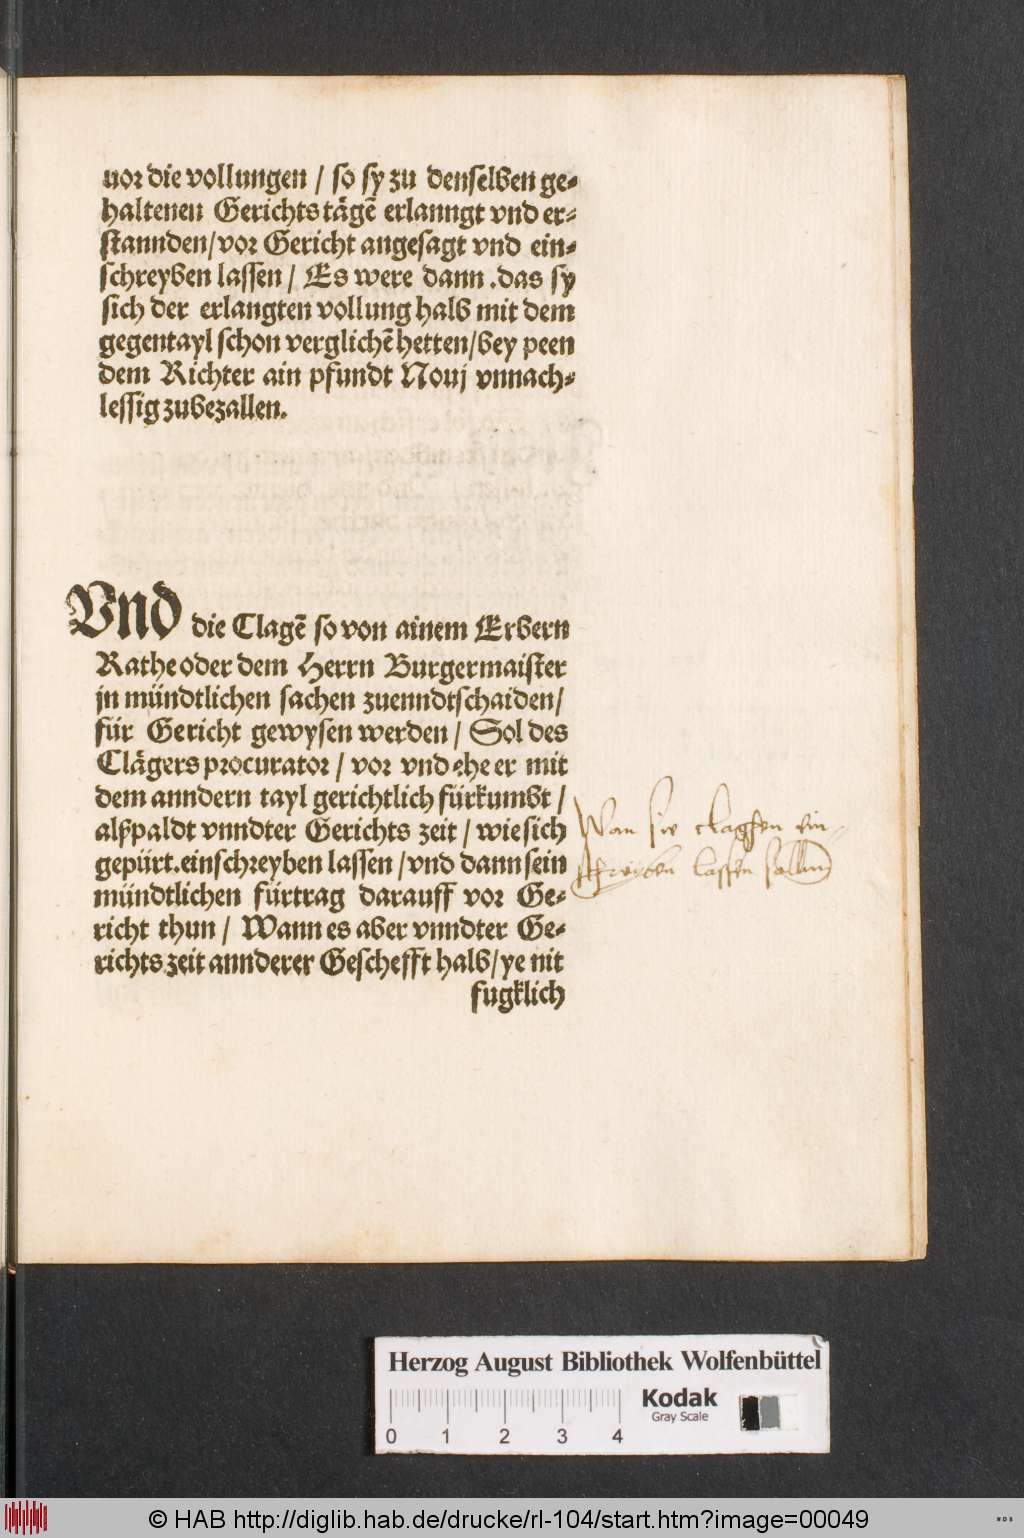 uor die vollungen / so sy zu denselben ge⸗
haltenen Gerichts tägē erlanngt vnd er⸗
stannden/vor Gericht angesagt vnd ein⸗
schreyben lassen / Es were dann .das sy
sich der erlangten vollung halb mit dem
gegentayl schon verglichē hetten/bey peen
dem Richter ain pfundt Nouj vnnach⸗
lessig zubezallen.
Vnd die Clagē so von ainem Erbern
Rathe oder dem Herrn Burgermaister
jn mündtlichen sachen zuenndtschaiden/
für Gericht gewysen werden / Sol des
Clägers procurator / vor vnd ehe er mit
dem anndern tayl gerichtlich fürkumbt /
alßpaldt vnndter Gerichts zeit / wie sich
gepürt.einschreyben lassen /vnd dann sein
mündtlichen fürtrag darauff vor Ge⸗
richt thun / Wann es aber vnndter Ge⸗
richts zeit annderer Geschefft halb/ye nit
fugklich
Wan sie clagen ein⸗
schreiben lassen sollen
Herzog August Bibliothek Wolfenbüttel
Kodak
Gray Scale
0 1 2 3 4
© HAB http://diglib.hab.de/drucke/rl-104/start.htm?image=00049